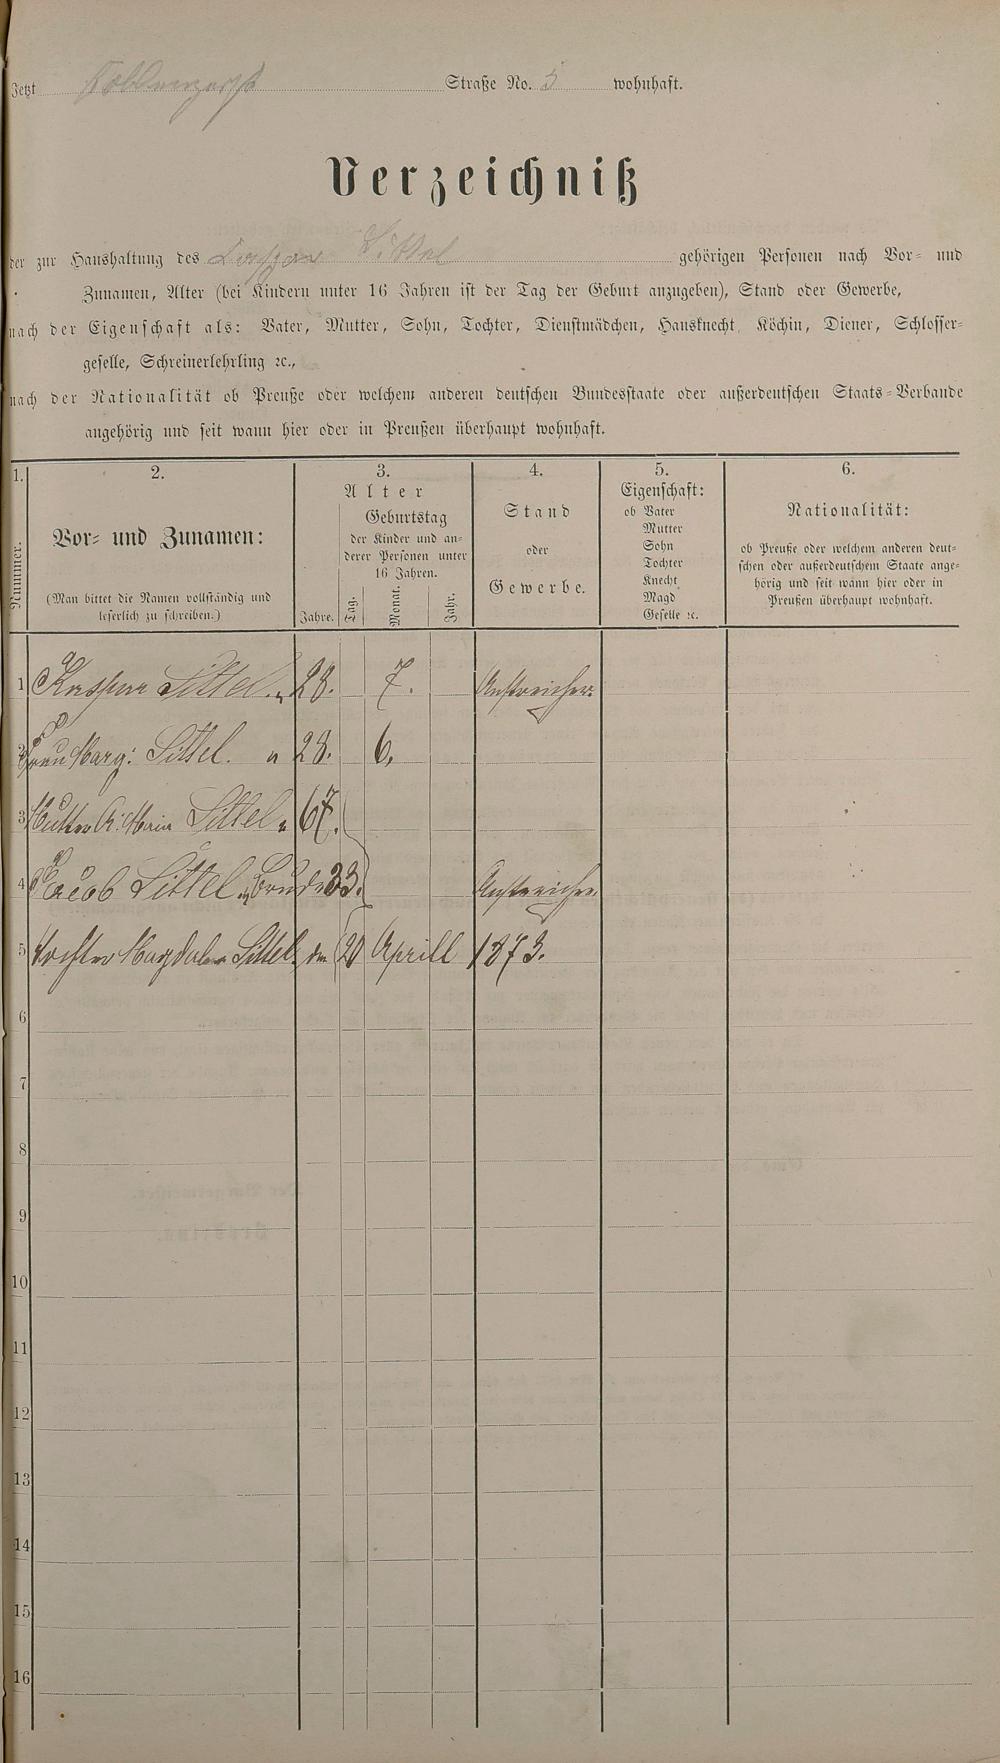 Jetzt Coblenzerst Straße No. 5 wohnhaft.
Verzeichniß
der zur Haushaltung des Caspar Sittel gehörigen Personen nach Vor- und
Zunamen, Alter (bei Kindern unter 16 Jahren ist der Tag der Geburt anzugeben), Stand oder Gewerbe,
nach der Eigenschaft als: Vater, Mutter, Sohn, Tochter, Dienstmädchen, Hausknecht, Köchin, Diener, Schlosser-
geselle, Schreinerlehrling ꝛc.,
nach der Nationalität ob Preuße oder welchem anderen deutschen Bundesstaate oder außerdeutschen Staats-Verbande
angehörig und seit wann hier oder in Preußen überhaupt wohnhaft.
1. 2. 3. 4. 5. 6.
Nummer.
Vor- und Zunamen:
(Man bittet die Namen vollständig und
leserlich zu schreiben.)
Alter
Jahre.
Geburtstag
der Kinder und an-
derer Personen unter
16 Jahren.
Tag. Monat. Jahr.
Stand
oder
Gewerbe.
Eigenschaft:
ob Vater
Mutter
Sohn
Tochter
Knecht
Magd
Geselle ꝛc.
Nationalität:
ob Preuße oder welchem anderen deut-
schen oder außerdeutschem Staate ange-
hörig und seit wann hier oder in
Preußen überhaupt wohnhaft.
1 Kaspar Sittel. 28. 7. Anstreicher.
2 Frau Marg: Sittel. 28. 6.
3 Mutter A. Maria Sittel 67.
4 Jacob Sittel. Bruder 33. Anstreicher
5 Tochter Magdalena Sittel den 20 Aprill 1873.
6
7
8
9
10
11
12
13
14
15
16